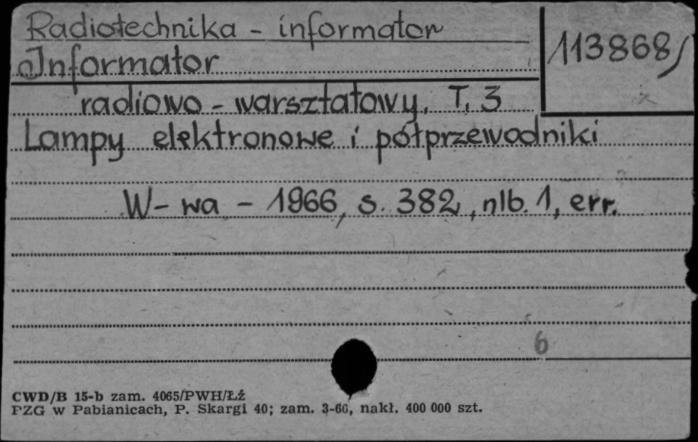 Radiotechnika - informator
113868/
Informator
radiowo-warsztatowy. T. 3
Lampy elektronowe i półprzewodniki
W-wa - 1966, s. 382, nlb. 1, err.
6
CWD/B 15-b zam. 4065/PWH/Łź
PZG w Pabianicach, P. Skargi 40; zam. 3-66, nakł. 400 000 szt.